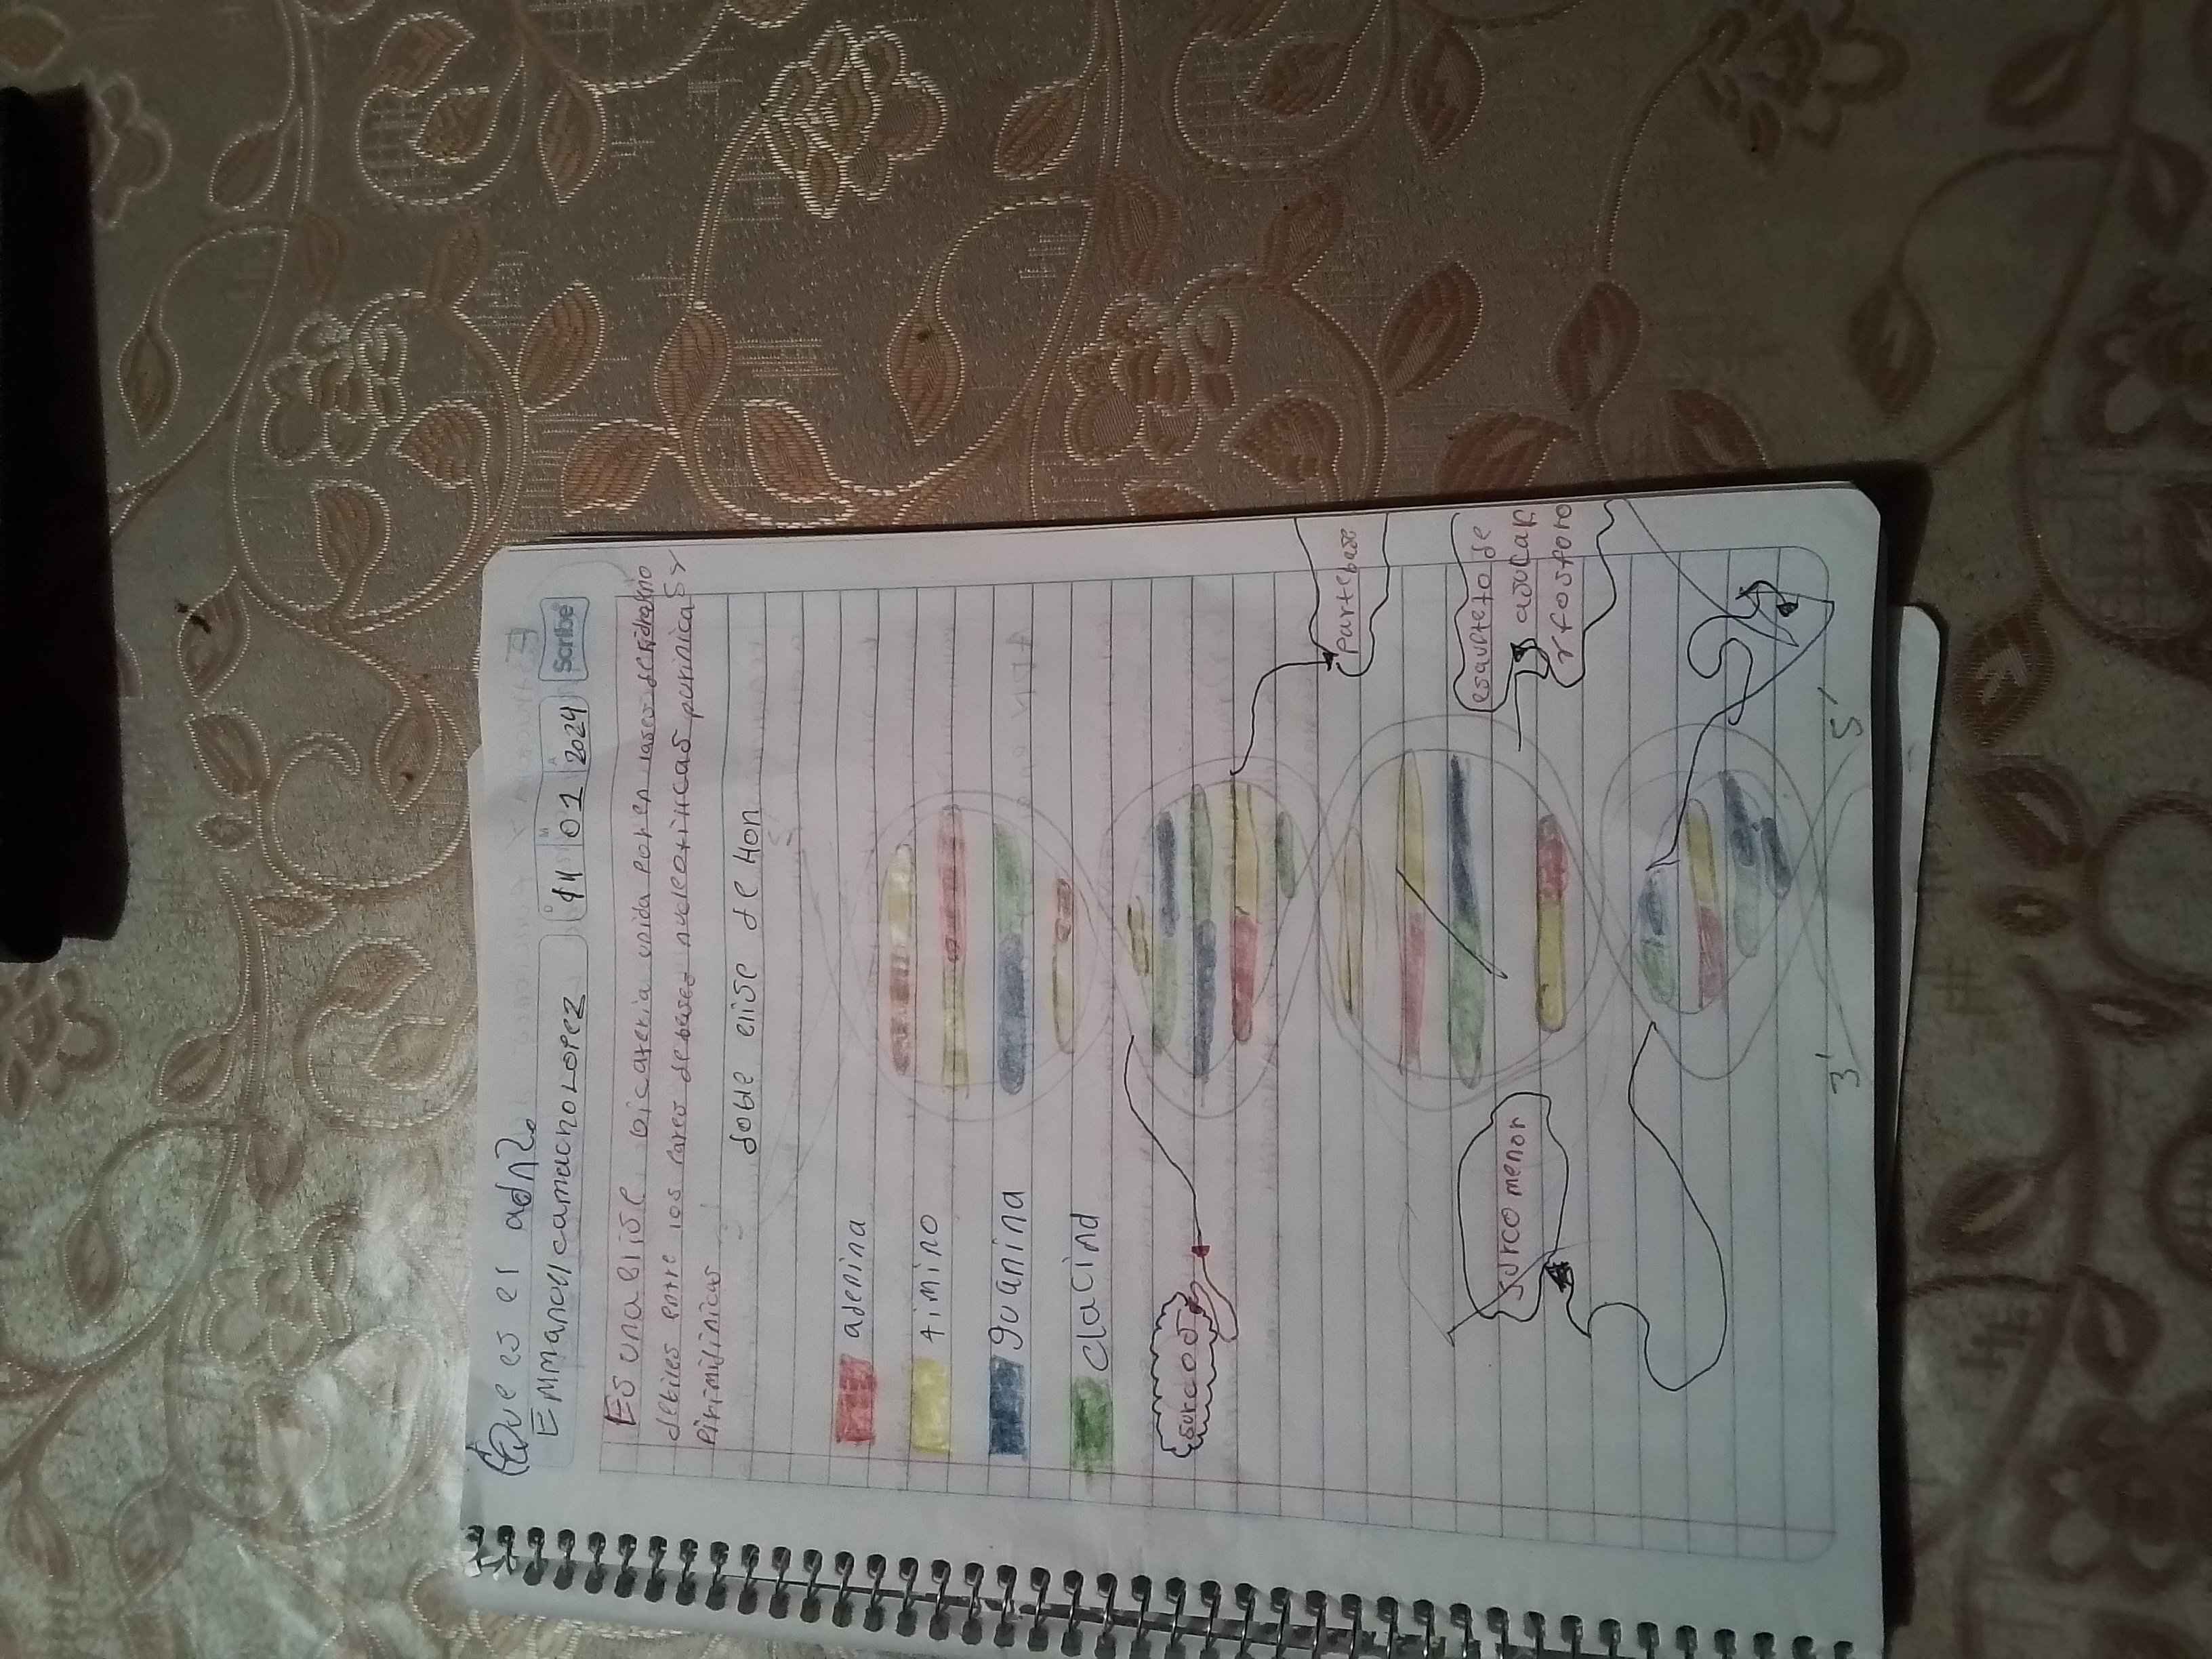 Que es el adn?
Emmanoel camacho Lopez
D 14 M 01 A 2024
Scribe
Es una elise bicateria unida por en lases de hidrogeno
debiles entre los Pares de bases nucleotiticas purinicas y
Pirimidinicas
doble elise de Hon
adenina
timino
guanina
Clacina
surcos
Parte base
esauleto de
azucar
y fosforo
surco menor
3'
5'